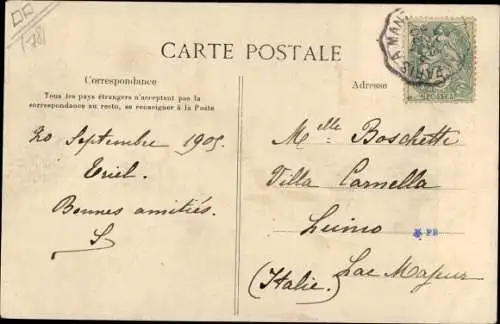 (78)
CARTE POSTALE
A MAN
PARIS
Correspondance
Tous les pays étrangers n'acceptent pas la
correspondance au recto, se renseigner à la Poste
Adresse
20 Septembre 1905
Triel.
Bonnes amitiés.
S
Melle Boschetti
Villa Carnella
Luino
PB
Lac Majeur
(Italie)